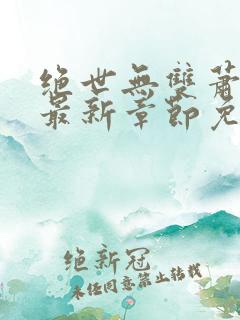 绝世無雙蕭
最新章節免
绝新冠
未经同意禁止转载